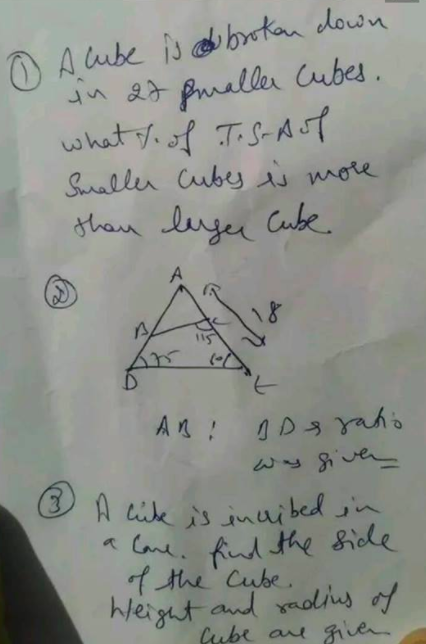 ① A cube is broken down
in 27 smaller cubes.
what % of T.S.A of
Smaller cubes is more
than larger cube.
②
A
18
B C
115
75 60
D E
AB : BD ratio
was given
③ A cube is incribed in
a cone. find the side
of the cube.
Height and radius of
cube are given